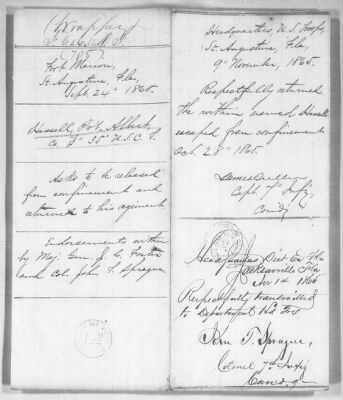 (Wrapper)
Fort Marion,
St. Augustine, Fla.
Sept. 24th 1865.
Hassell, Pvt. Albert,
Co. "F" 35" U.S.C.T.
Asks to be released
from confinement and
returned to his regiment
Endorsements within
by Maj. Gen. J. G. Foster
and Col. John T. Sprague.
Headquarters, U.S. Troops,
St. Augustine, Fla,
9" November, 1865.
Respectfully returned
the within named Hassell
escaped from confinement
Oct. 28th 1865.
Capt. 7" Infy,
Comd'g
Headquarters Dist Ea Fla
Jacksonville Fla
Nov 14 1865
Respectfully transmitted
to Department Hd Qrs
John T. Sprague,
Colonel 7th Infty